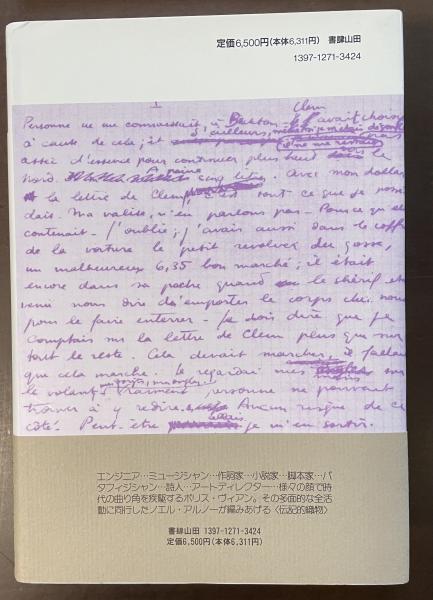 定価6,500円(本体6,311円) 書肆山田
1397-1271-3424
1
Clem
Personne ne me connaissait à Buckton. avait choisi
d'ailleurs, même si je m'étais dégonflé
à cause de cela; et il ne me restait pas
assez d'essence pour continuer plus haut vers le
Nord. A peine cinq litres. Avec mon dollar
la lettre de Clem, c'est tout ce que je possé
dais. Ma valise, n'en parlons pas - Pour ce qu'elle
contenait - J'oublie; j'avais aussi dans le coffre
de la voiture le petit revolver du gosse,
un malheureux 6,35 bon marché; il était
encore dans sa poche quand le shérif et
venu nous dire d'emporter le corps chez nous
pour le faire enterrer - Je dois dire que je
comptais sur la lettre de Clem plus que sur
tout le reste. Cela devait marcher, il fallait
que cela marche. Je regardai mes mains sur
le volant, Vraiment personne ne pouvait
trouver à y redire. Aucun risque de ce
côté. Peut-être je m'en sortir.
エンジニア…ミュージシャン…作詞家…小説家…脚本家…パ
タフィジシャン…詩人…アートディレクター…様々の顔で時
代の曲り角を疾駆するボリス・ヴィアン。その多面的な全活
動に同行したノエル・アルノーが編みあげる〈伝記的織物〉
書肆山田 1397-1271-3424
定価6,500円(本体6,311円)